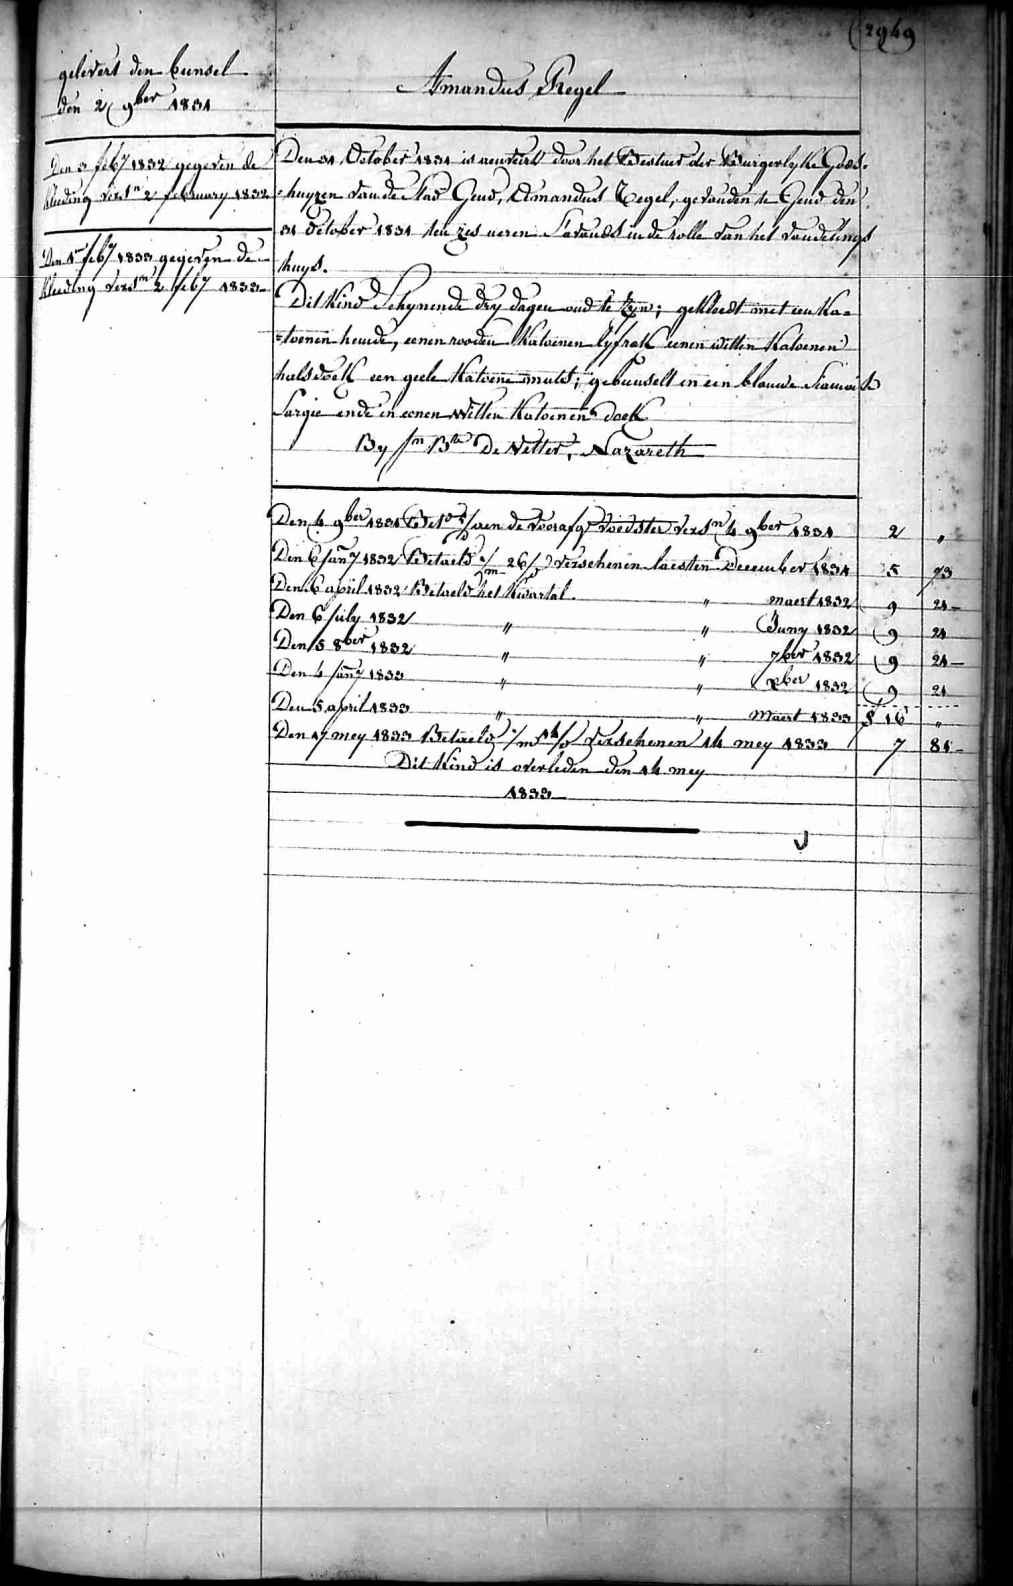 2949
gelevert den bunsel
den 2 9ber 1831
Amandus Regel
Den 3 feb7 1832 gegeven de
kleeding vers.n 2 february 1832
Den 1 feb7 1833 gegeven de
kleeding vers.n 2 feb7 1833
Den 31 October 1831 is aenveird door het Bestuer der Burgerlyke Gods-
=huyzen van de Stad Gend, Amandus Regel, gevonden te Gend den
31 October 1831 ten zes ueren S'avonds in de rolle van het vondelings
huys.
Dit Kind Schynende dry dagen oud te zyn; gekleedt met een Ka=
=toenen hemde, eenen rooden Katoenen lyfrok eenen witten Katoenen
halsdoek een geele Katoene muts; gebunselt in een blauwe
Sargie ende in eenen Witten Katoenen doek
By Jn Bte De Vetter, Nazareth
Den 4 9ber 1831 aen de voorafg. voedster vers.n 4 9ber 1831 2 "
Den 6 Jan7 1832 Betaeld 26/ verschenen laesten December 1831 5 73
Den 6 april 1832 Betaeld het Kwartal " maert 1832 9 21
Den 6 July 1832 " " Juny 1832 9 21
Den 5 8ber 1832 " " 7ber 1832 9 21
Den 4 Jan7 1833 " " xber 1832 9 21
Den 5 april 1833 " " Maert 1833 8 16 "
Den 17 mey 1833 Betaeld verschenen 14 mey 1833 7 81
Dit Kind is overleden den 14 mey
1833